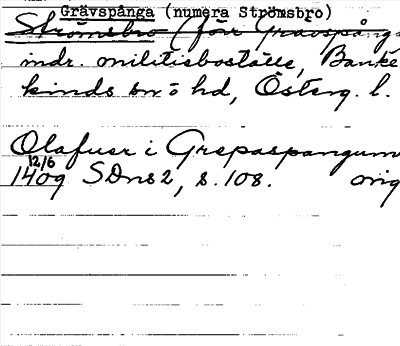 Grävspånga (numera Strömsbro)
Strömsbro (förr Gravspång
indr. militieboställe, Banke
kinds sn o hd, Österg. l.
Olafuer i Grepaspangum
12/6
1409 SDns 2, s. 108. orig